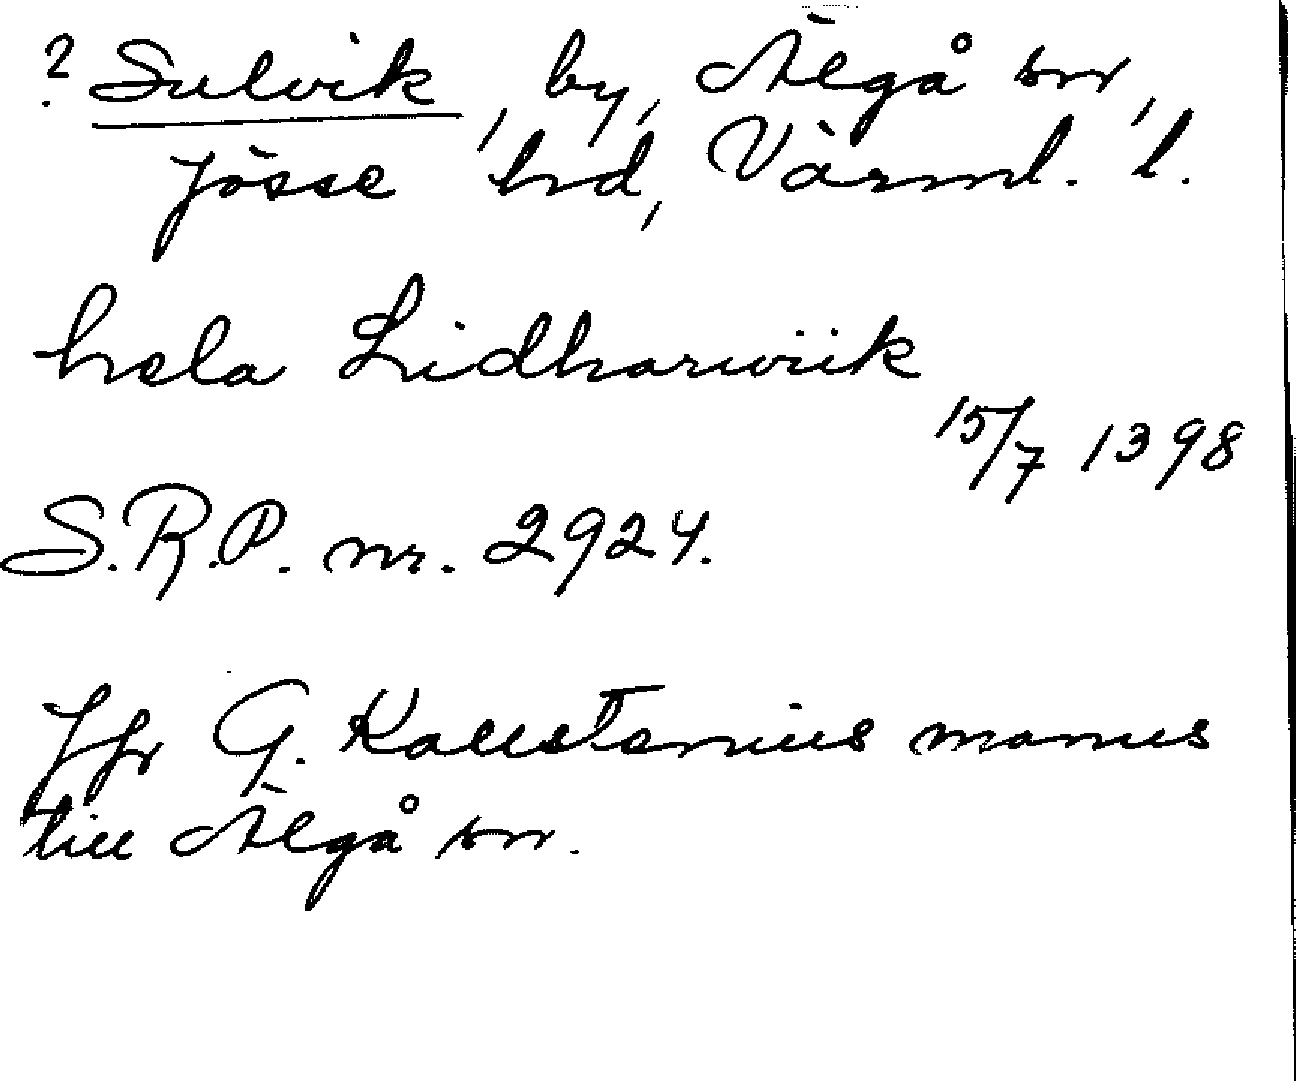 ? Sulvik, by, Älgå sn,
Jösse hd, Värml. l.
hela Lidharwiik
15/7 1398
S.R.P. nr. 2924.
Jfr G. Kallstenius manus
till Älgå sn.